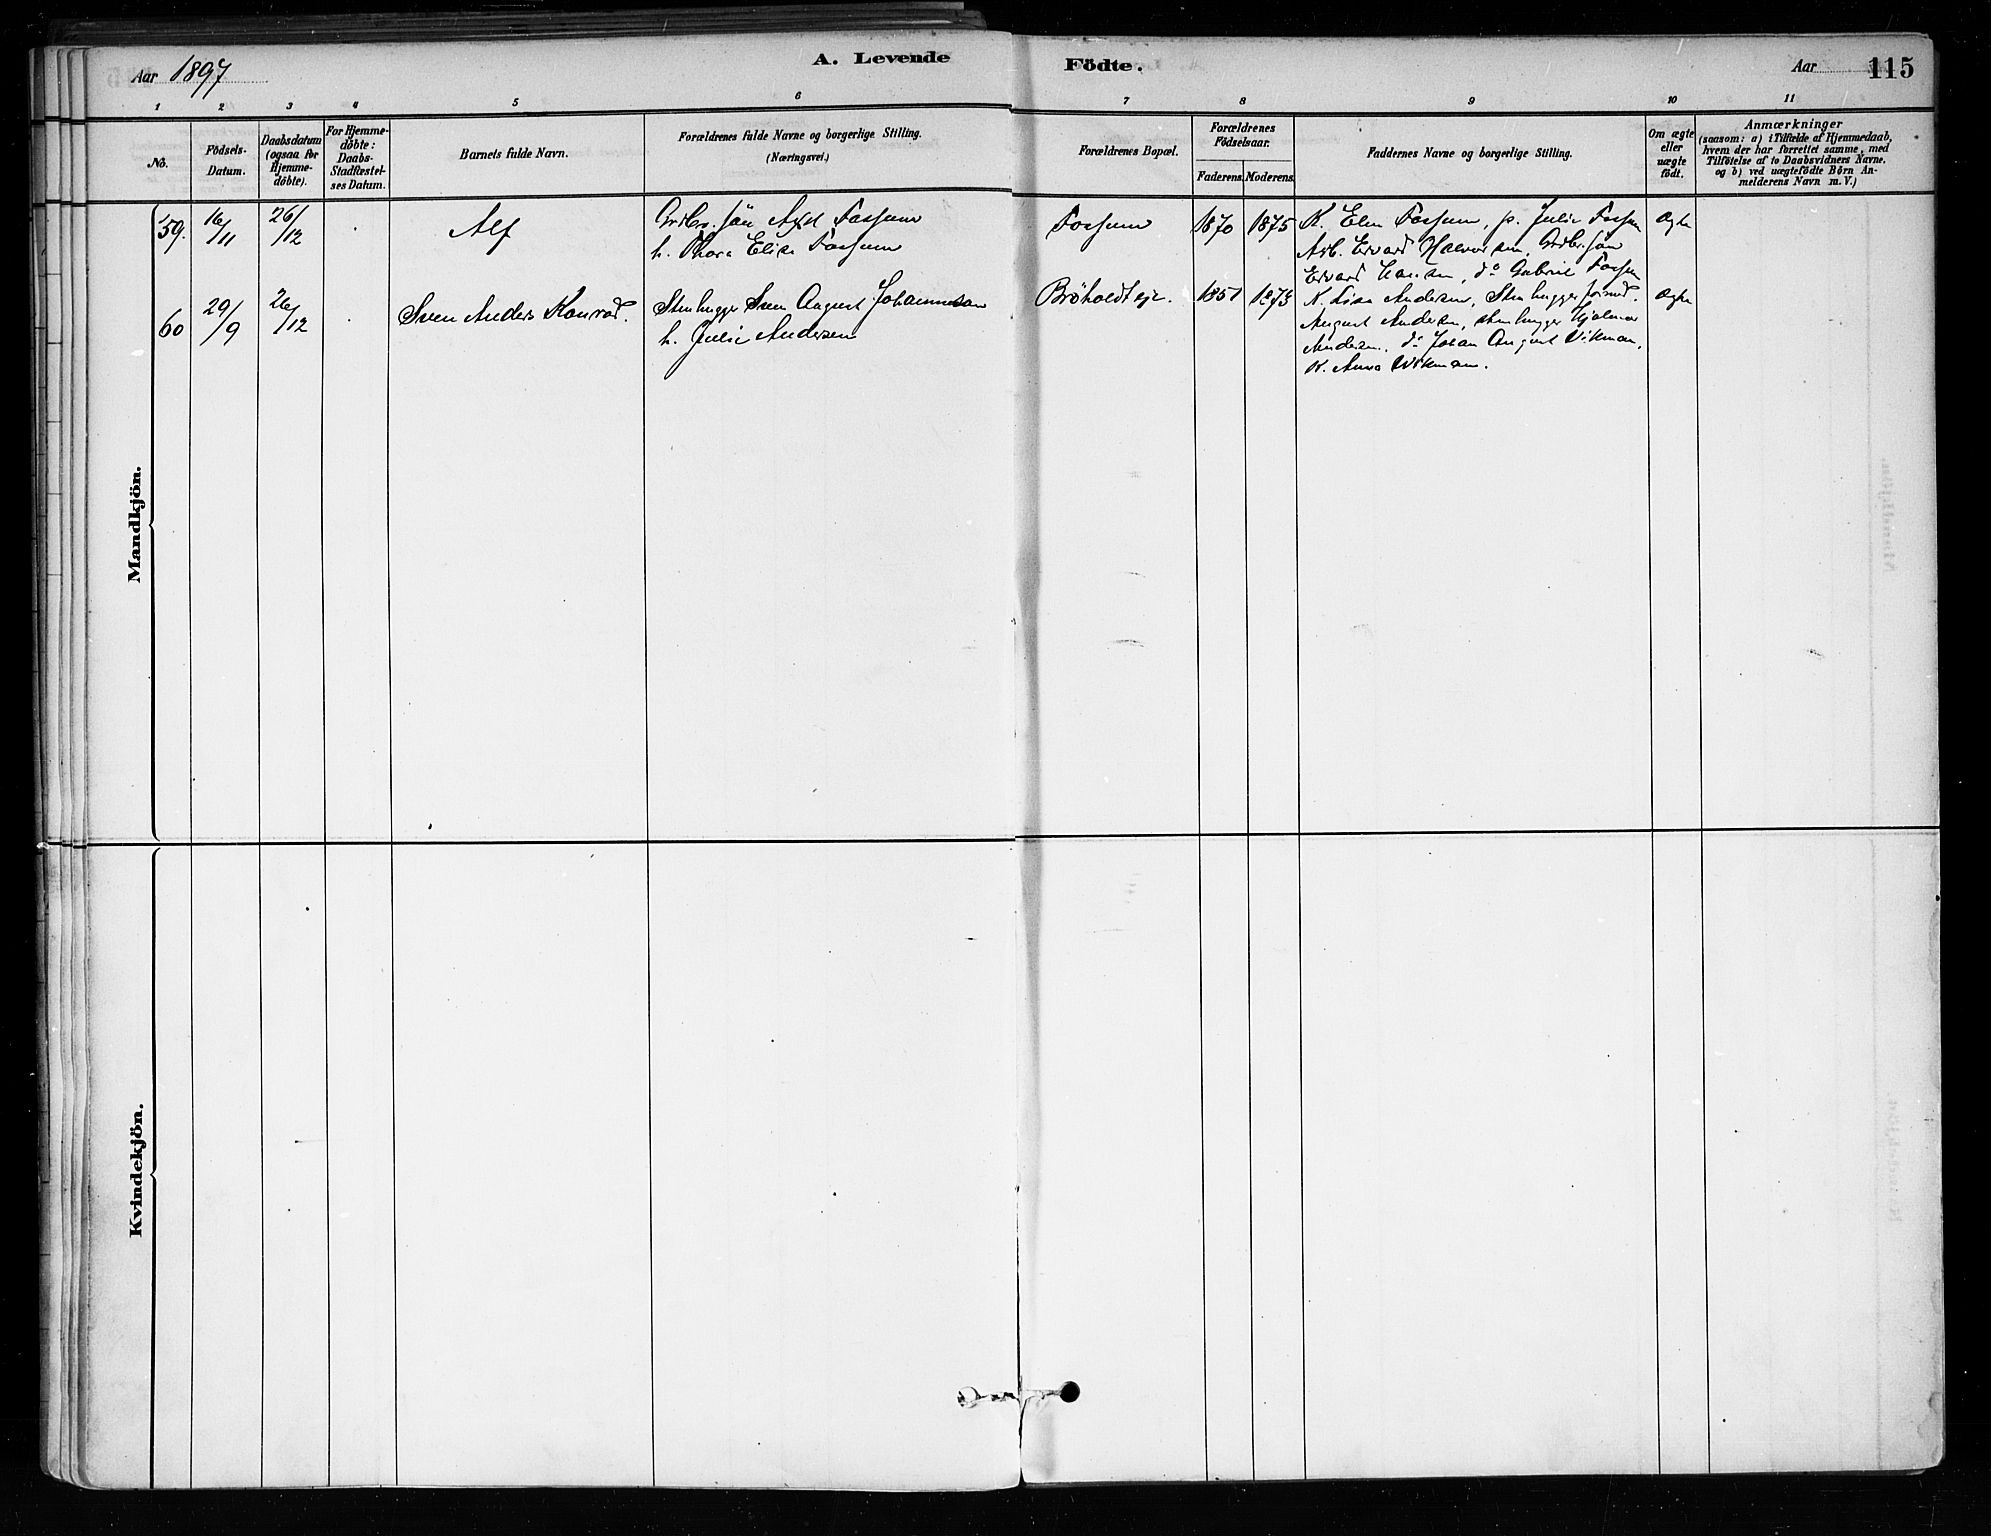 Aar 1897
A. Levende Födte.
Aar 115
1 2 3 4 5 6 7 8 9 10 11
No.
Födsels-Datum.
Daabsdatum (ogsaa for Hjemme-döbte).
For Hjemme-döbte: Daabs-Stadfæstel-ses Datum.
Barnets fulde Navn.
Forældrenes fulde Navne og borgerlige Stilling.
(Næringsvei.)
Forældrenes Bopæl.
Forældrenes Födselsaar.
Faderens. Moderens.
Faddernes Navne og borgerlige Stilling.
Om ægte eller uægte födt.
Anmærkninger
(saasom: a) i Tilfælde af Hjemmedaab,
hvem der har forrettet samme, med
Tilföielse af to Daabsvidners Navne.
og b) ved uægtefödte Börn An-
melderens Navn m. V.)
Mandkjön.
59. 16/11 26/12 Alf
Grdbr. sön Axel Fossum
h. Thora Elise Fossum
Fossum 1870 1875
K. Elen Fossum, p. Julie Fossum
Arb. Edvard Halvorsen, Grdbr. sön
Edvard Hansen, do Gabriel Fossum
Ægte
60 29/9 26/12 Sven Anders Konrad.
Stenhugger Sven August Johannesson
h. Julie Andersen
Bröholdt eje. 1851 1873
K. Lisa Andersen, Stenhugger
August Andersen, stenhugger Hjalmar
Andersen, do Johan August Vikman,
K. Anna Wikman.
Ægte
Kvindekjön.